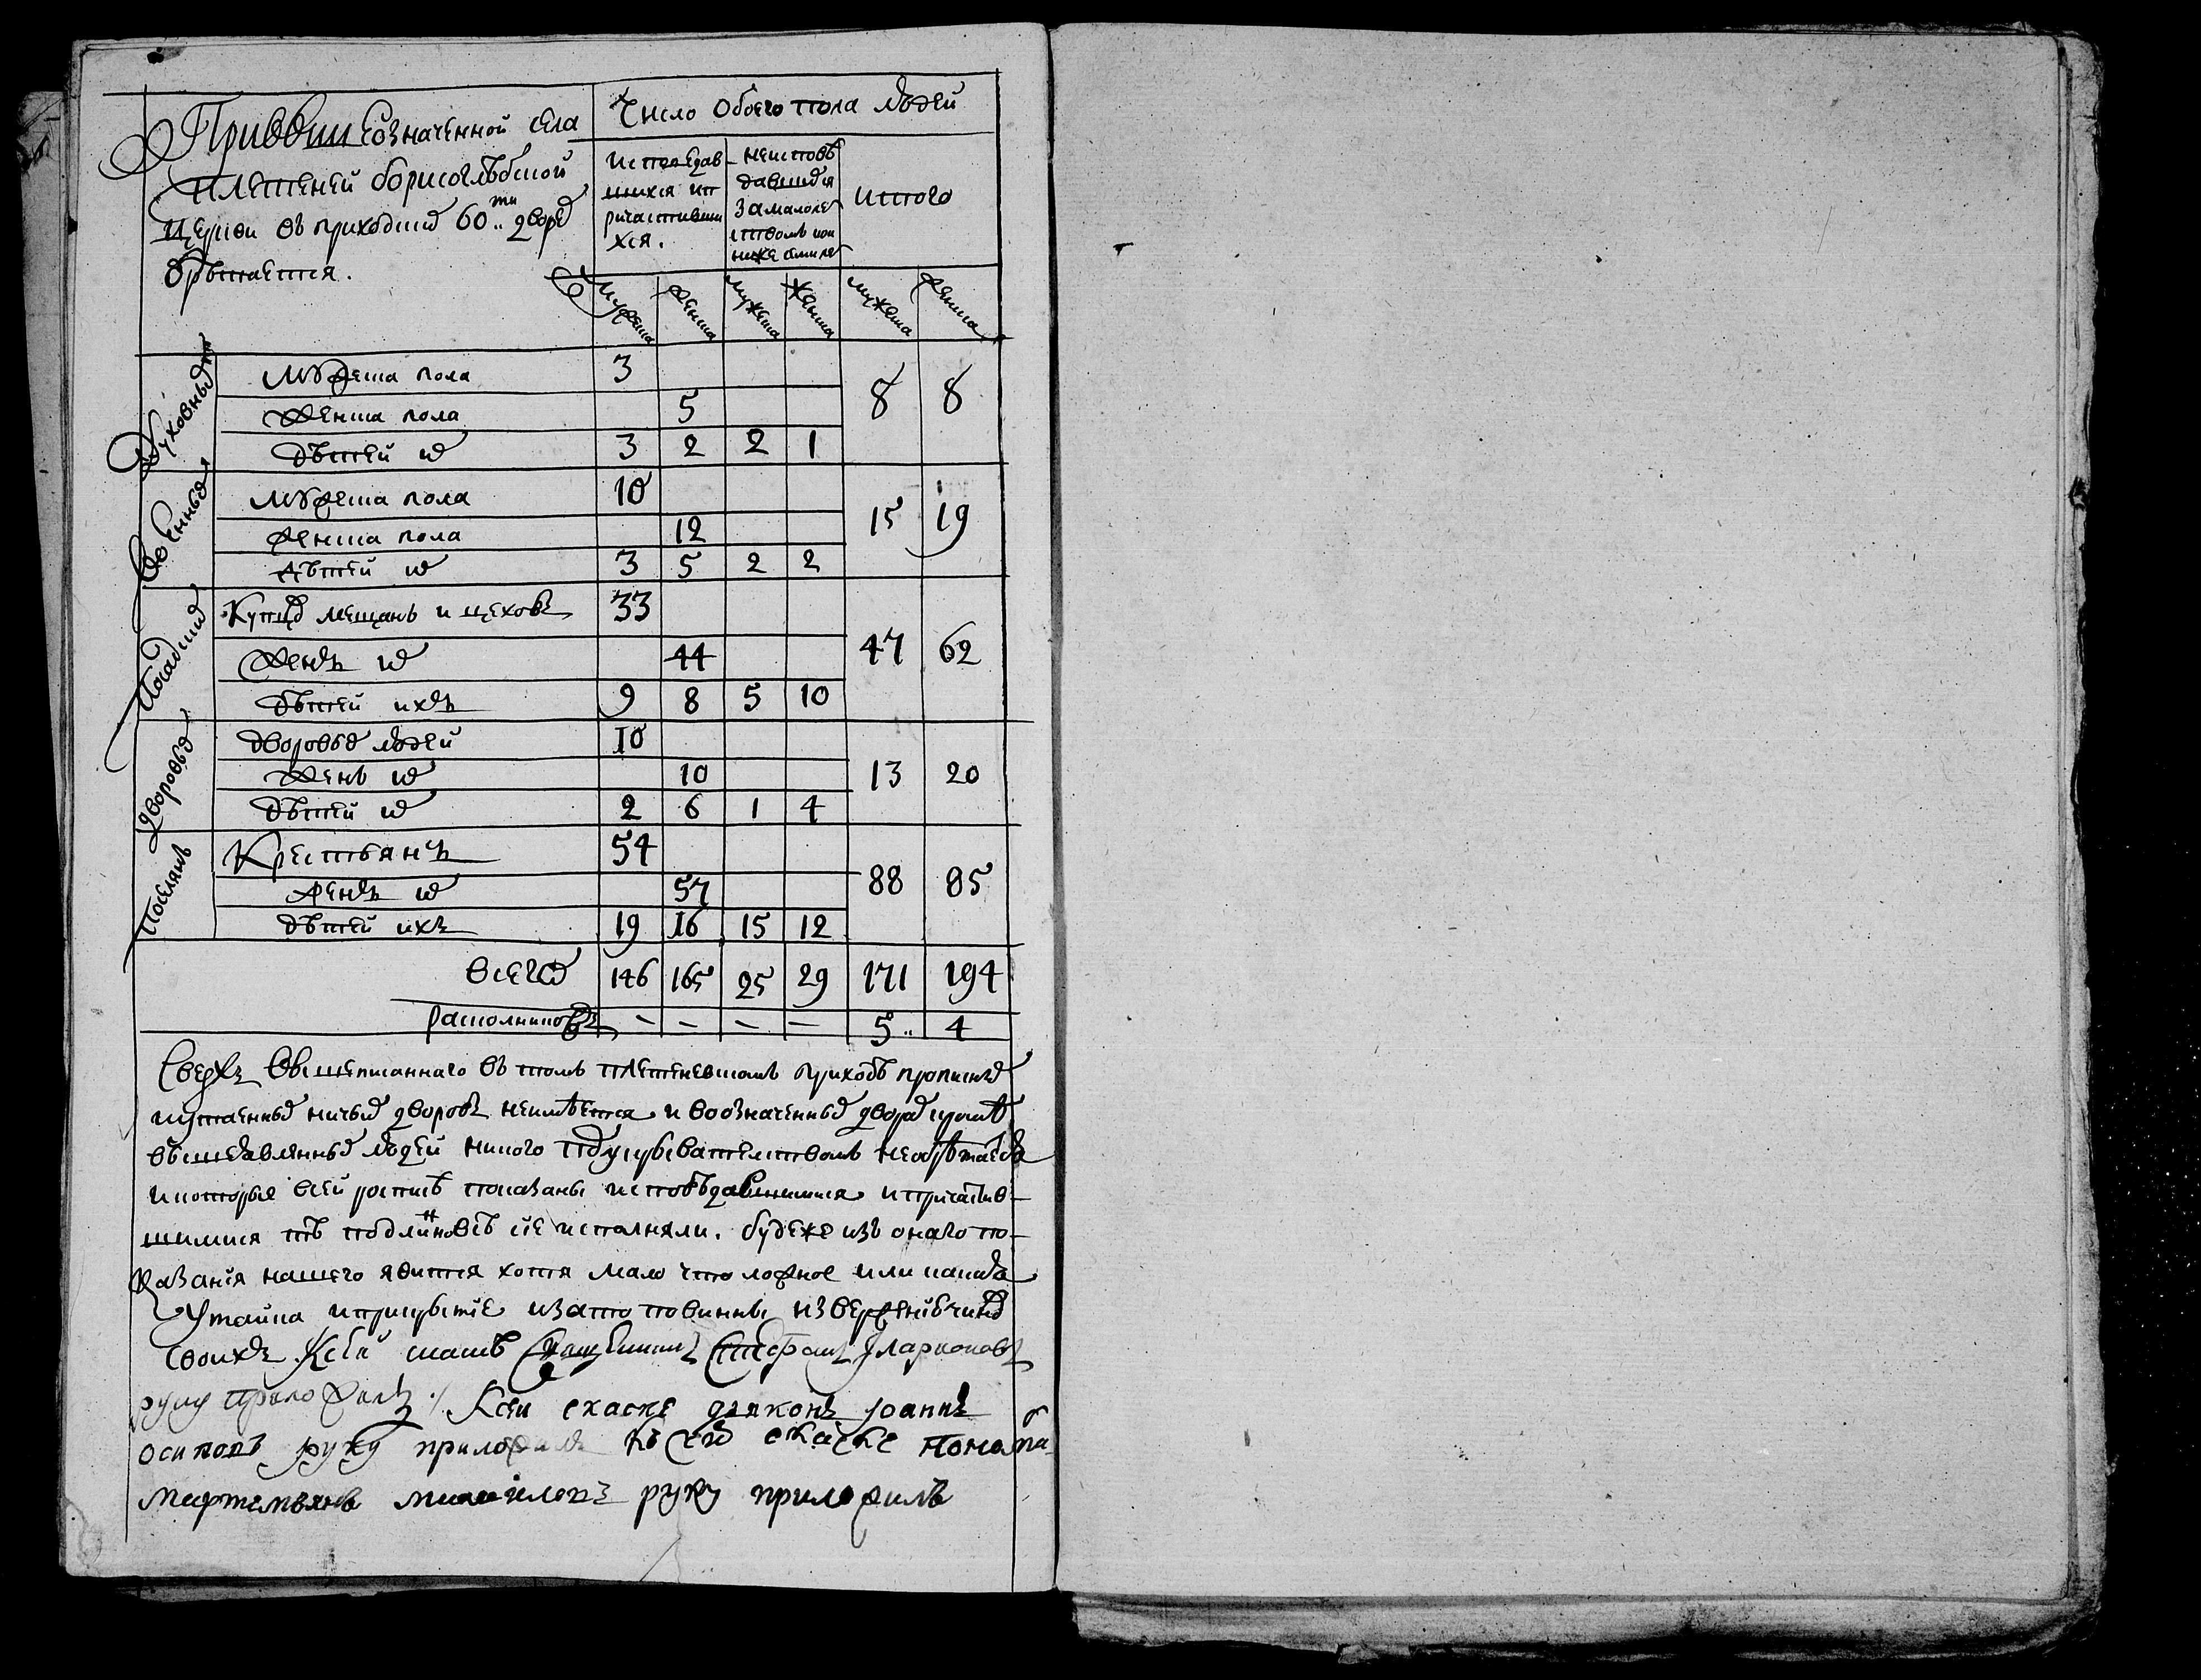 При вышеозначенной села
Плетеней борисоглѣбской
церкви въ приходскихъ 60ти дворахъ
обрѣтается.
Число Обоего пола людей
исповѣдав
шихся ип
ричастивши
хся.
неисповѣ
давшихся
за малолет
ством кои
ниже семи лет
итого
мужеска женска мужеска женска мужеска женска
Духовныхъ
мужеска пола 3
женска пола 5
дѣтей их 3 2 2 1
8 8
Военныхъ
мужеска пола 10
женска пола 12
дѣтей их 3 5 2 2
15 19
Посадских
Купцовъ мещанъ и цеховъ 33
женъ их 44
дѣтей ихъ 9 8 5 10
47 62
дворовых
дворовых людей 10
женъ их 10
дѣтей их 2 6 1 4
13 20
Поселянъ
Крестьянъ 54
женъ их 57
дѣтей ихъ 19 16 15 12
88 85
всего 146 165 25 29 171 194
расколниковъ – – – – 5 4
Сверхъ вышеписаннаго въ томъ плетеневскомъ приходѣ прописных
ипущенных ничьих дворовъ неимѣется и воозначенных дворах кромѣ
вышеявленных людей никого подукрывателствомъ необрѣтается
икоторые всей росписѣ показаны исповѣдавшимися ипричастив-
шимися тѣ подлинно всѣ сие исполняли. будеже изъ онаго по-
казания нашего явится хотя мало что ложное или какая
Утайка иприкрытие изато повинны извержению чиновъ
своихъ Ксей скаскѣ Священникъ Стефанъ Иларионовъ
руку приложилъ / Ксеи скаске дьяконъ Иоаннъ
осиповъ руку приложилъ къ сей скаске пономарь
мефтемьянъ михаиловъ руку приложилъ